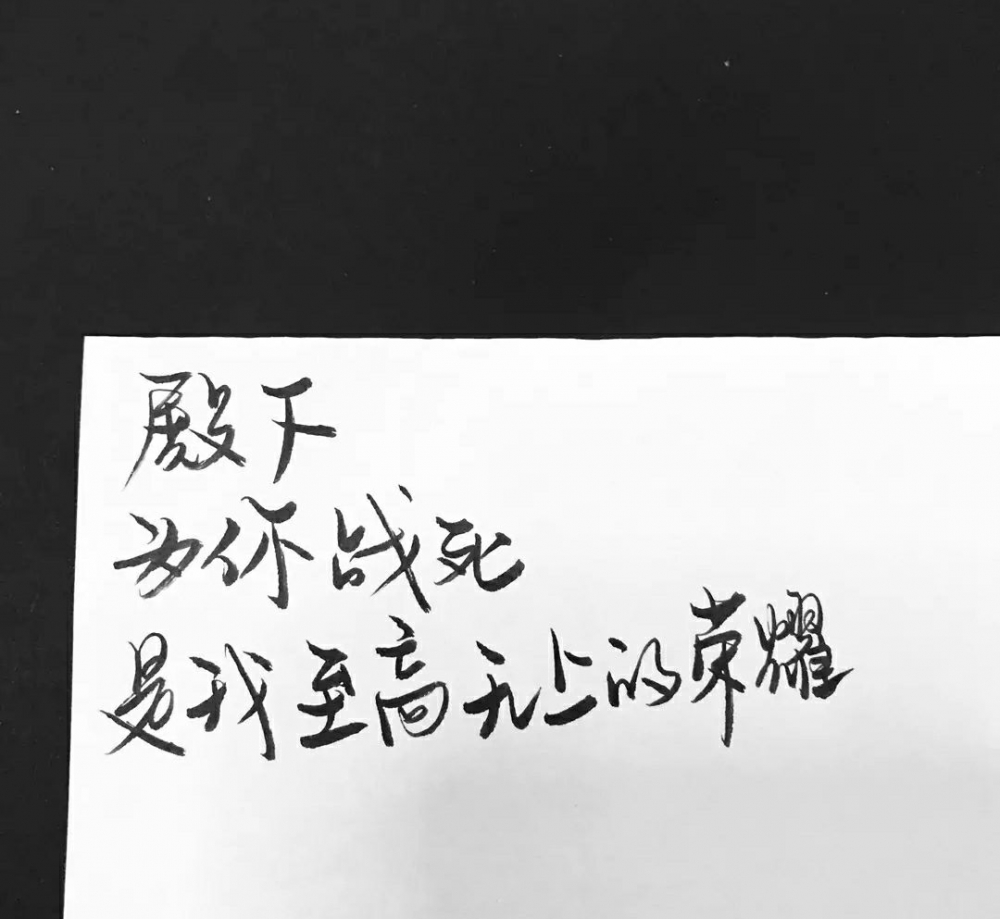 殿下
为你战死
是我至高无上的荣耀